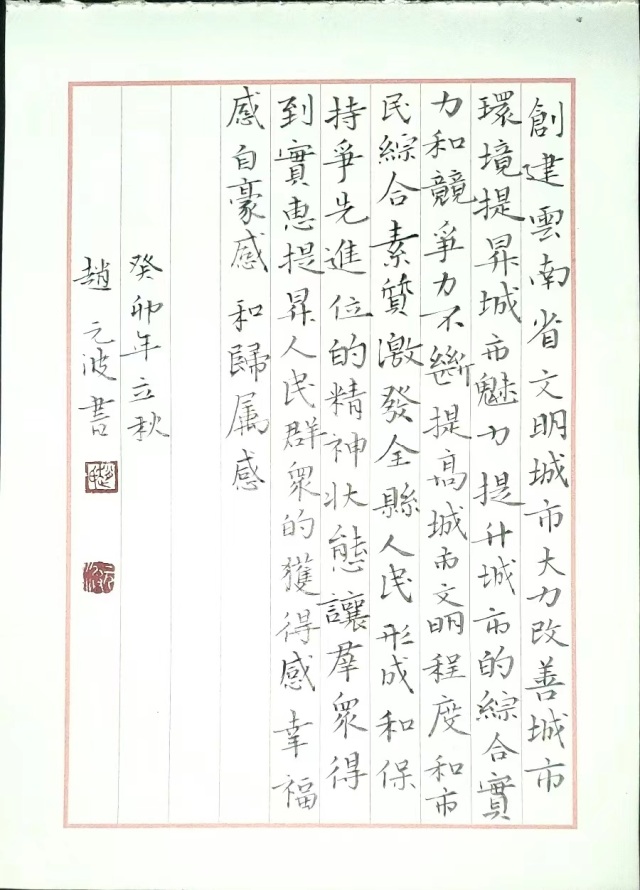 創建雲南省文明城市大力改善城市
環境提昇城市魅力提升城市的綜合實
力和競爭力不斷提高城市文明程度和市
民綜合素質激發全縣人民形成和保
持爭先進位的精神狀態讓群眾得
到實惠提昇人民群眾的獲得感幸福
感自豪感和歸属感
癸卯年立秋
趙元波書